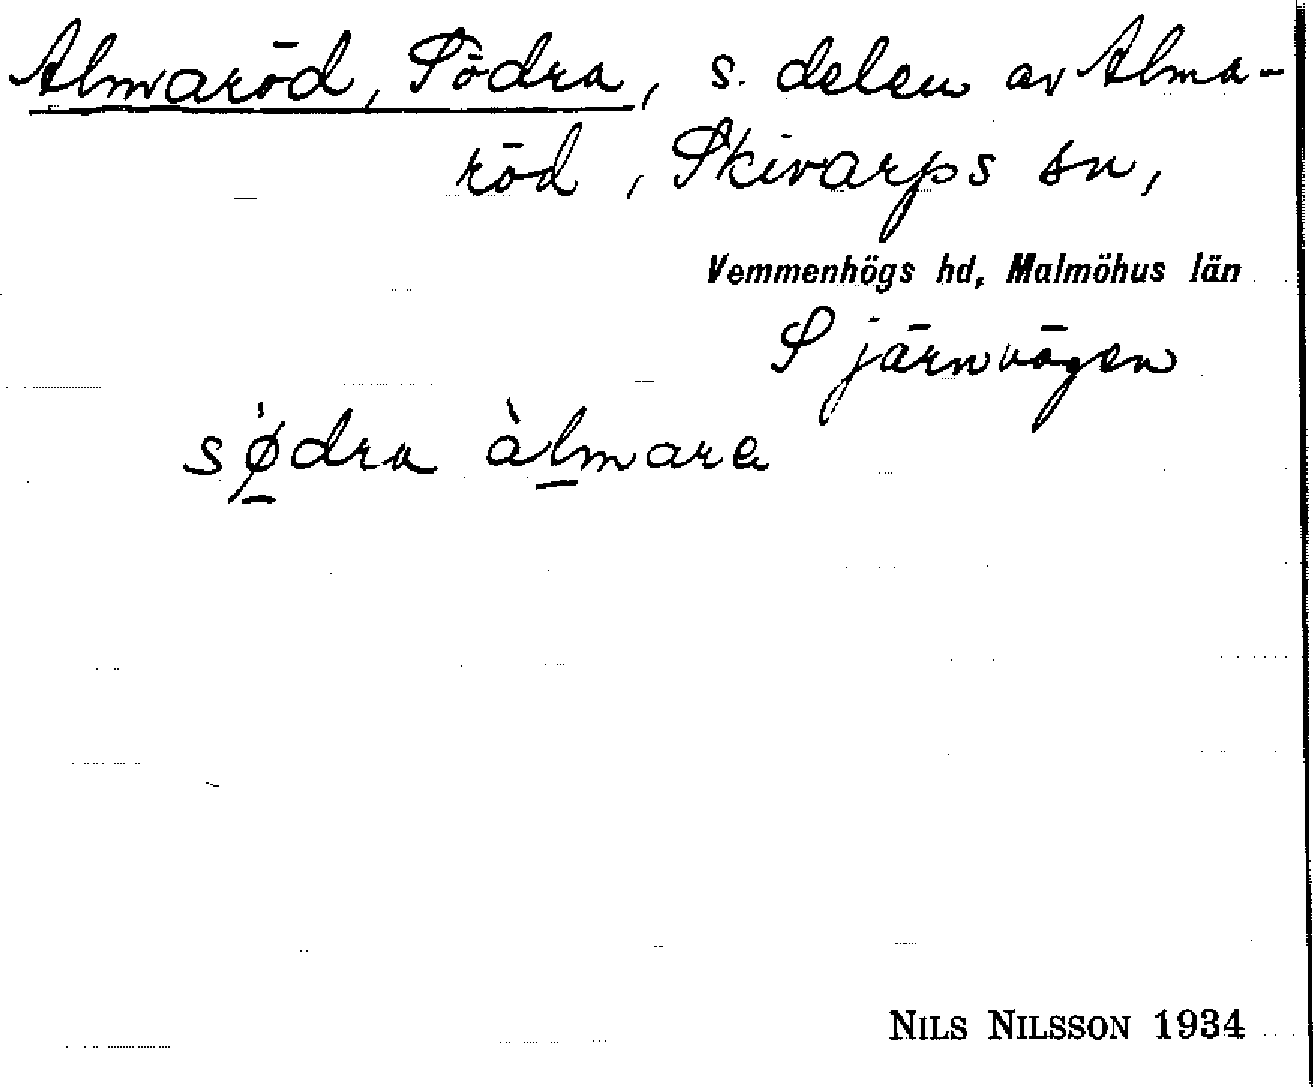 Almaröd, Södra, s. delen av Alma-
röd, Skivarps sn,
Vemmenhögs hd, Malmöhus län
S järnvägen
sǿ̱dra àḻmara
NILS NILSSON 1934